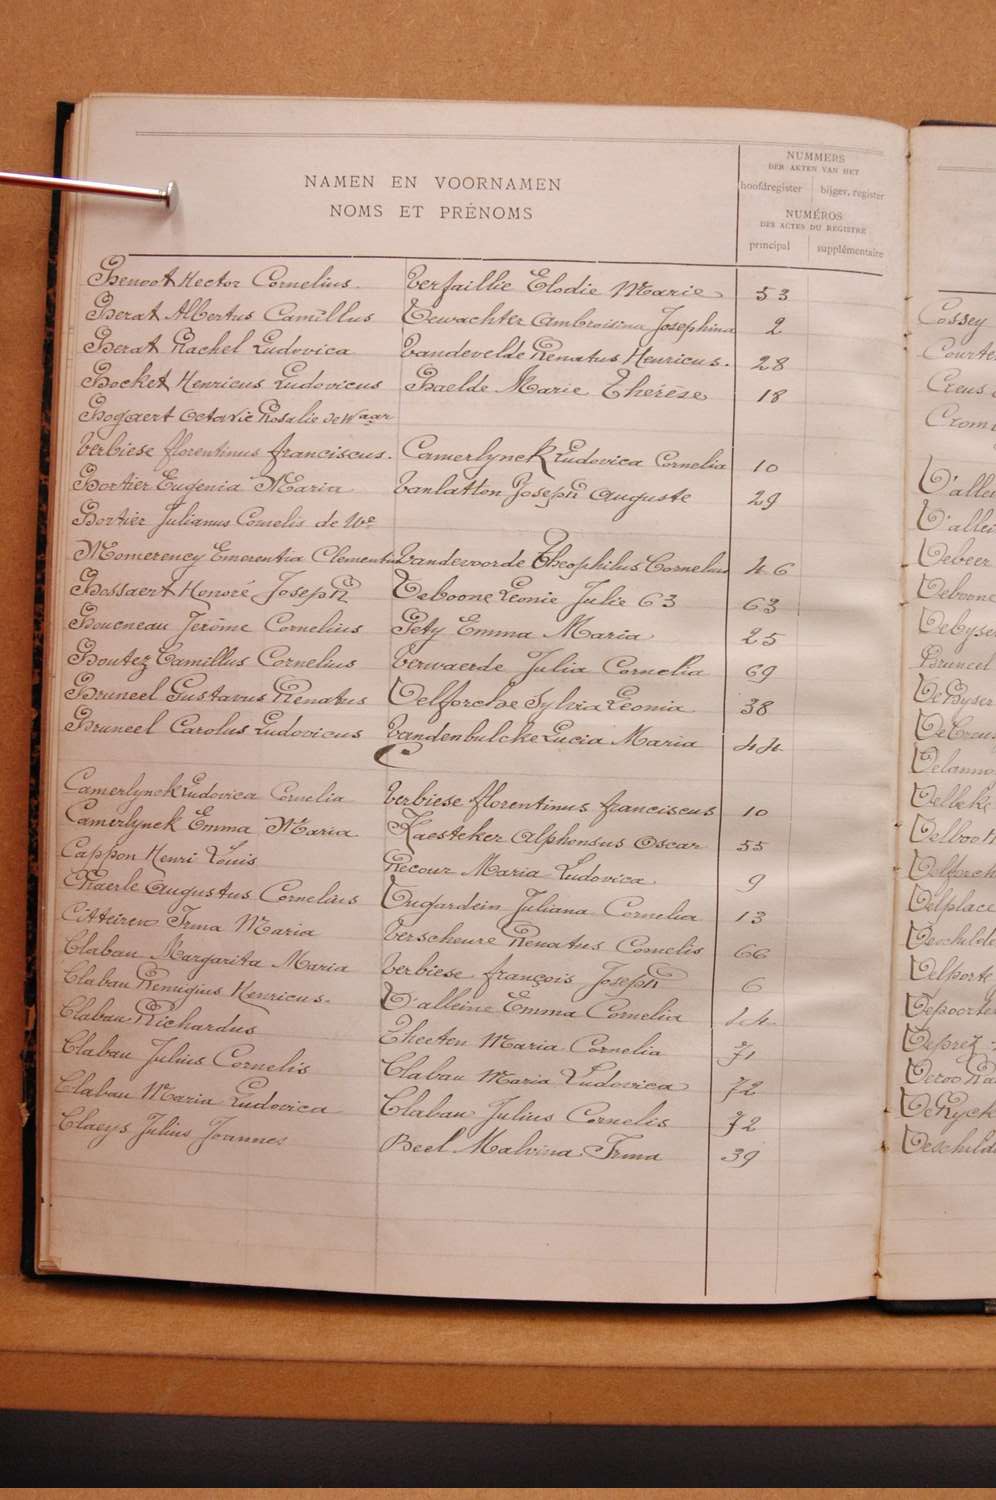 NAMEN EN VOORNAMEN
NOMS ET PRÉNOMS
NUMMERS
DER AKTEN VAN HET
hoofdregister bijgev. register
NUMÉROS
DES ACTES DU REGISTRE
principal supplémentaire
Benoot Hector Cornelius. Verfaillie Elodie Marie 53
Berat Albertus Camillus Dewachter Ambroisina Josephina 2
Berat Rachel Ludovica Vandevelde Renatus Henricus. 28
Bocket Henricus Ludovicus Baelde Marie Thérèse 18
Bogaert Octavie Rosalie de Waar
Verbiese florentinus franciscus. Camerlynck Ludovica Cornelia 10
Bortier Eugenia Maria Vanlatton Joseph Auguste 29
Bortier Julianus Cornelis de We
Momerency Emerentia Clementina Vandevoorde Theophilus Cornelius 46
Bossaert Honoré Joseph Deboone Leonie Julie 63 63
Boucneau Jerôme Cornelius Pety Emma Maria 25
Boutez Camillus Cornelius Verwaerde Julia Cornelia 69
Bruneel Gustavus Renatus Delforche Sylvia Leonia 38
Bruneel Carolus Ludovicus Vandenbulcke Lucia Maria 44
C
Camerlynck Ludovica Cornelia Verbiese florentinus franciscus 10
Camerlynck Emma Maria Kaesteker Alphonsus Oscar 55
Cappon Henri Louis Recour Maria Ludovica 9
Chaerle Augustus Cornelius Dugardein Juliana Cornelia 13
Citteiren Irma Maria Verscheure Renatus Cornelis 66
Clabau Margarita Maria Verbiese françois Joseph 6
Clabau Remigius Henricus. D'alleine Emma Cornelia 44
Clabau Richardus Theeten Maria Cornelia 71
Clabau Julius Cornelis Clabau Maria Ludovica 72
Clabau Maria Ludovica Clabau Julius Cornelis 72
Claeys Julius Joannes Beel Malvina Irma 39
Cossey